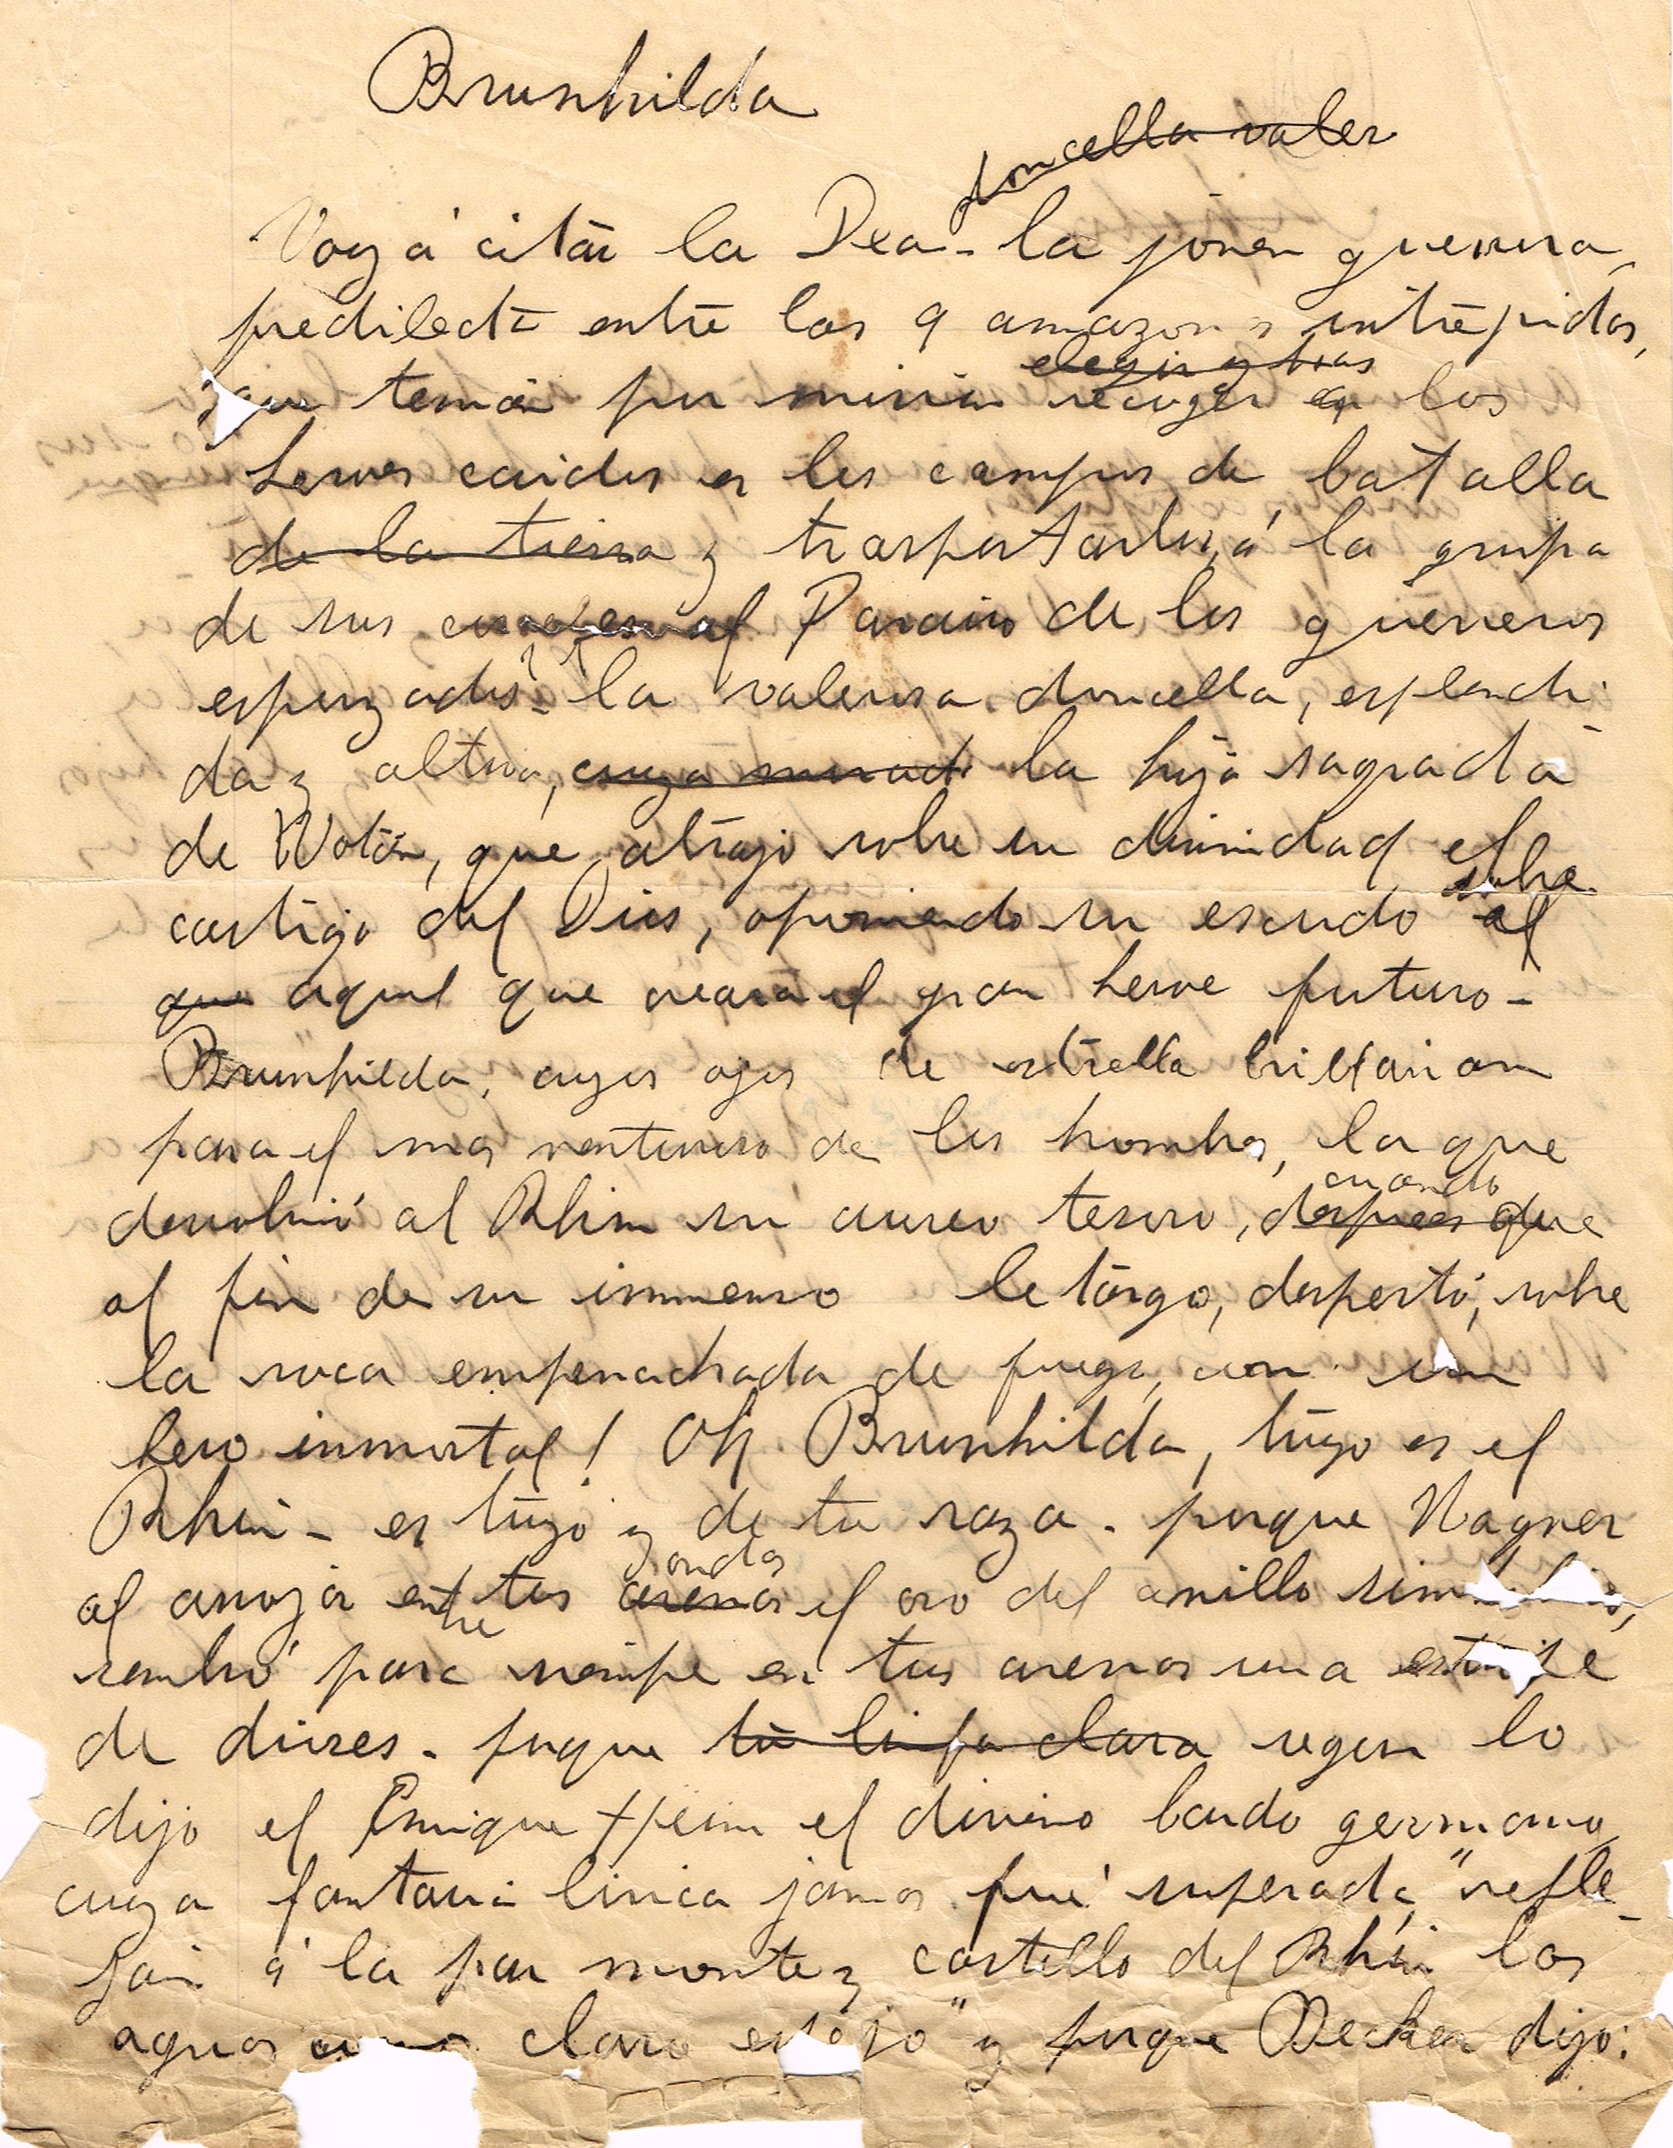 Brunhilda
doncella valer
Voy á citar la Dea - la jóven guerrera,
predilecta entre las 9 amazonas intrépidas,
que tenian por mision recoger los
elegir y tras
heroes caidos en los campos de batalla
de la tierra y trasportarlos, á la grupa
de sus corceles al Paraiso de los guerreros
esforzados - la valerosa doncella, esplendi-
da y altiva, cuya mirada la hija sagrada
de Wotan, que atrajo sobre su divinidad el
castigo del Dios, oponiendo su escudo al
sobre
que aquel que creara el gran heroe futuro -
Brunhilda, cuyos ojos de estrella brillarian
para el mas venturoso de los hombres, la que
devolvió al Rhin su aureo tesoro, despues que
cuando
al fin de su immenso letargo, despertó, sobre
la roca empenachada de fuego, con un
beso inmortal! Oh Brunhilda, tuyo es el
Rhin - es tuyo y de tu raza - porque Wagner
al arrojar entre tus arenas el oro del anillo simbolico,
ondas
sembró para siempre en tus arenas una estirpe
de dioses - porque tu linfa clara segun lo
dijo el Enrique Hein el divino bardo germano,
cuya fantasia lirica jamas fué superada, "refle-
jan á la par monte y castillo del Rhin las
aguas como claro espejo" y porque Becker dijo: